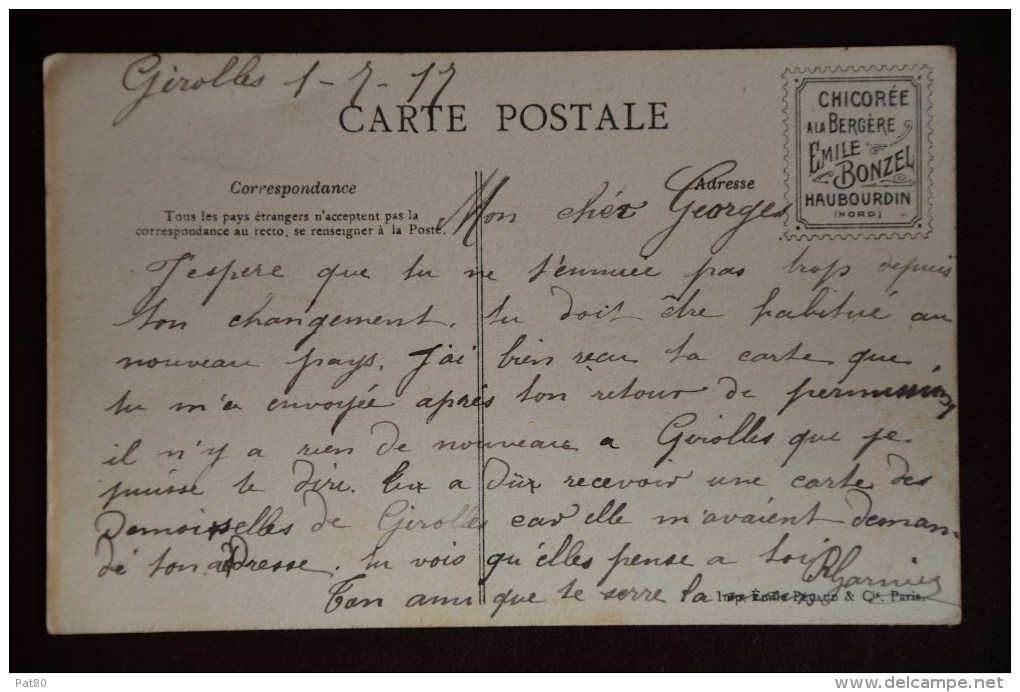 Girolles 1-7-17
CARTE POSTALE
CHICORÉE
A LA BERGÈRE
EMILE
BONZEL
HAUBOURDIN
(NORD)
Correspondance
Adresse
Tous les pays étrangers n'acceptent pas la
correspondance au recto, se renseigner à la Poste.
Mon cher Georges
J'espere que tu ne t'ennuie pas trop depuis
ton changement, tu doit être habitué au
nouveau pays. J'ai bien recu ta carte que
tu m'a envoyée aprés ton retour de permission
il n'y a rien de nouveau a Girolles que je
puisse te dire. tu a dûx recevoir une carte des
Demoiselles de Girolles car elle m'avaient deman-
dé ton adresse. tu vois qu'elles pense a toi
Ton ami que te serre la
Imp. Emile Pécaud & Cie, Paris.
Pat80
delcampe.net